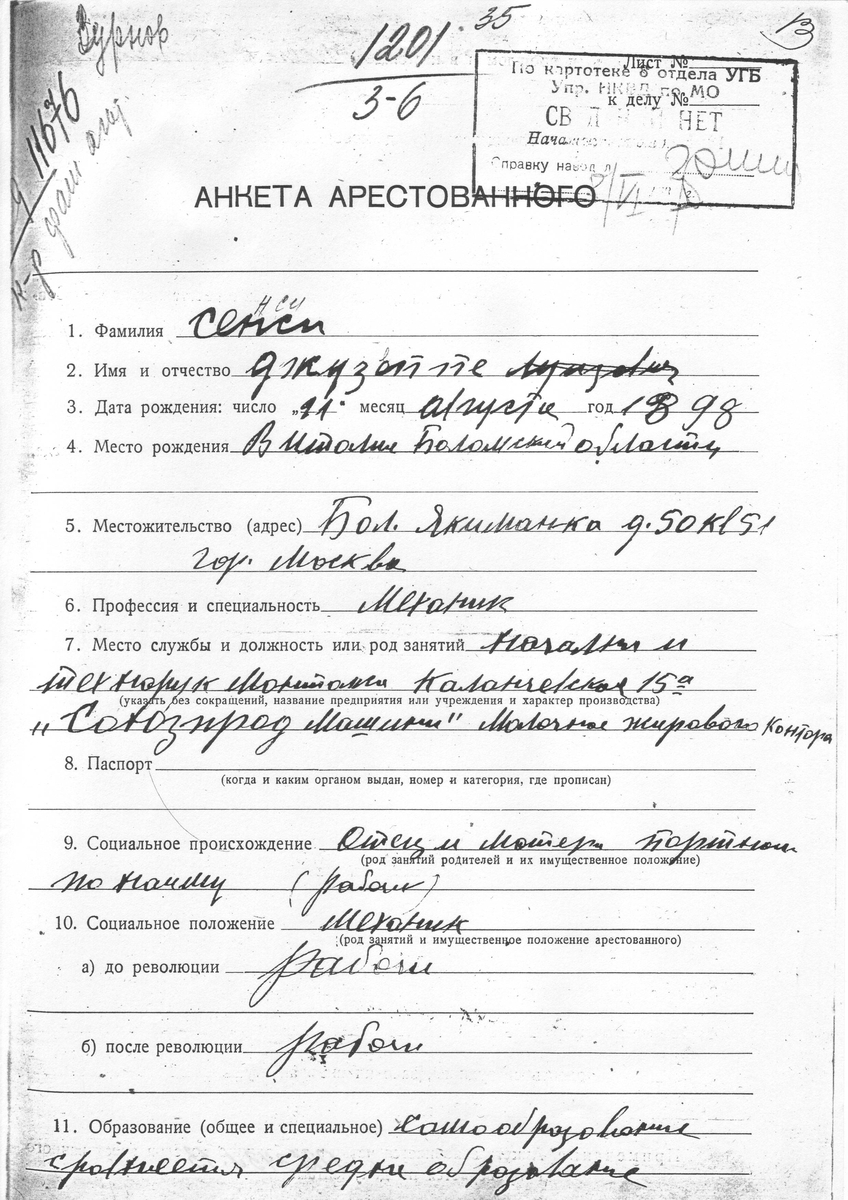 Зурнов
1201
35
3-6
13
Лист №
к делу №
По картотеке 8 отдела УГБ
Упр. НКВД по МО
НЕТ
Справку
АНКЕТА АРЕСТОВАННОГО
нси
1. Фамилия Сенси
2. Имя и отчество Джузеппе
3. Дата рождения: число „11" месяц августа год 1898
4. Место рождения В Италии Боломский области
5. Местожительство (адрес) Бол. Якиманка д. 50 кв 51
гор. Москва
6. Профессия и специальность Механик
7. Место службы и должность или род занятий
технорук Каланчевская 15а
(указать без сокращений, название предприятия или учреждения и характер производства)
„Союзпрод Машины" Молочно жирового контора
8. Паспорт
(когда и каким органом выдан, номер и категория, где прописан)
9. Социальное происхождение Отец и матери портные
(род занятий родителей и их имущественное положение)
по найму (рабочи)
10. Социальное положение Механик
(род занятий и имущественное положение арестованного)
а) до революции рабочи
б) после революции рабочи
11. Образование (общее и специальное) самообразование
сровняется средни образование